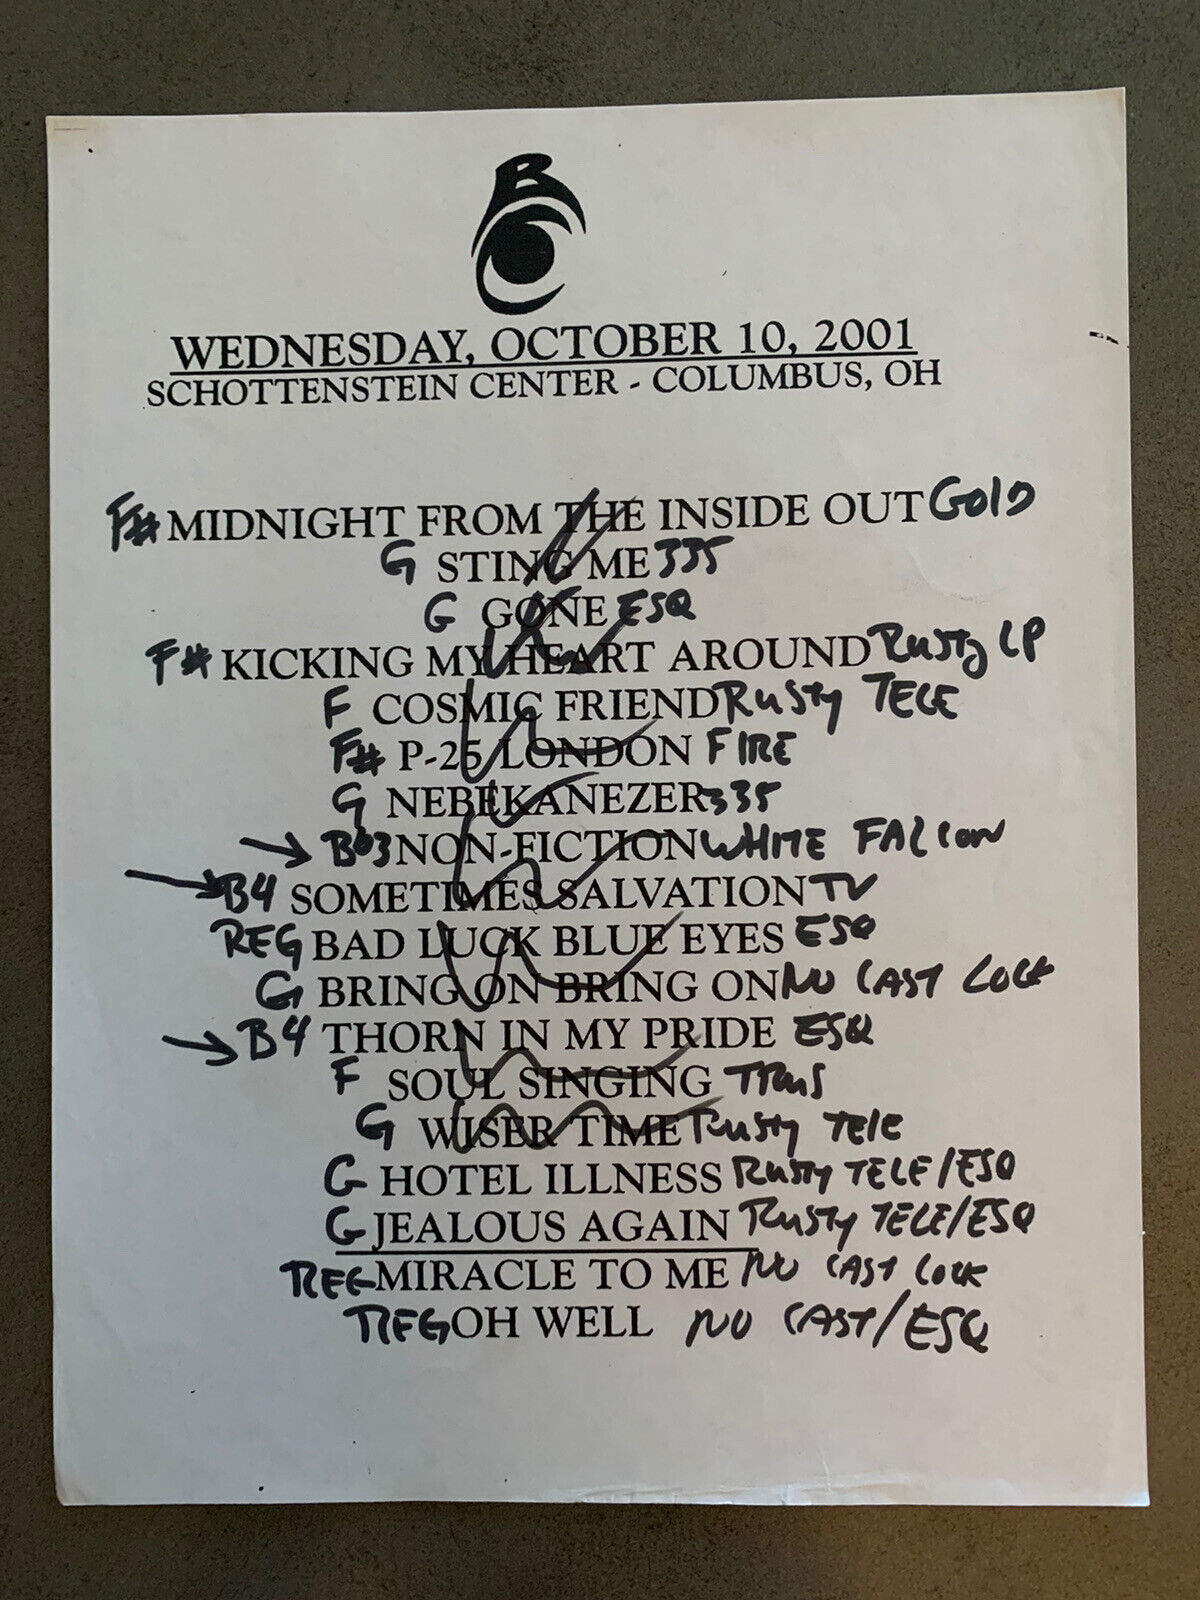 BC
WEDNESDAY, OCTOBER 10, 2001
SCHOTTENSTEIN CENTER - COLUMBUS, OH
F# MIDNIGHT FROM THE INSIDE OUT GOLD
G STING ME 335
G GONE ESQ
F# KICKING MY HEART AROUND RUSTY LP
F COSMIC FRIEND RUSTY TELE
F# P-25 LONDON FIRE
G NEBEKANEZER 335
→ NON-FICTION WHITE FALCON
→ B4 SOMETIMES SALVATION TV
REG BAD LUCK BLUE EYES ESQ
G BRING ON BRING ON NO CAST LOCK
→ B4 THORN IN MY PRIDE ESQ
F SOUL SINGING
G WISER TIME RUSTY TELE
G HOTEL ILLNESS RUSTY TELE/ESQ
G JEALOUS AGAIN RUSTY TELE/ESQ
REG MIRACLE TO ME NO CAST LOCK
REG OH WELL NO CAST/ESQ